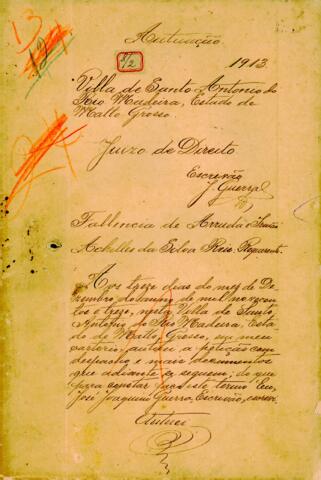 13
12
Autuação.
1/2
1913.
Villa de Santo Antonio do
Rio Madeira, Estado de
Matto Grosso.
Juizo de Direito
Escrivão
J. Guerra
Fallencia de Arruda & Irmão
Achilles da Silva Reis. Requerente.
Aos treze dias do mez de De
zembro do anno de mil nove cen
tos e treze, nesta Villa de Santo
Antonio do Rio Madeira, Esta
do de Matto Grosso, em meu
cartorio, autuo a petição com
despacho e mais documentos
que adiante se seguem; do que
para constar faço este termo Eu,
José Joaquim Guerra, Escrivão, escrevi
Autuei